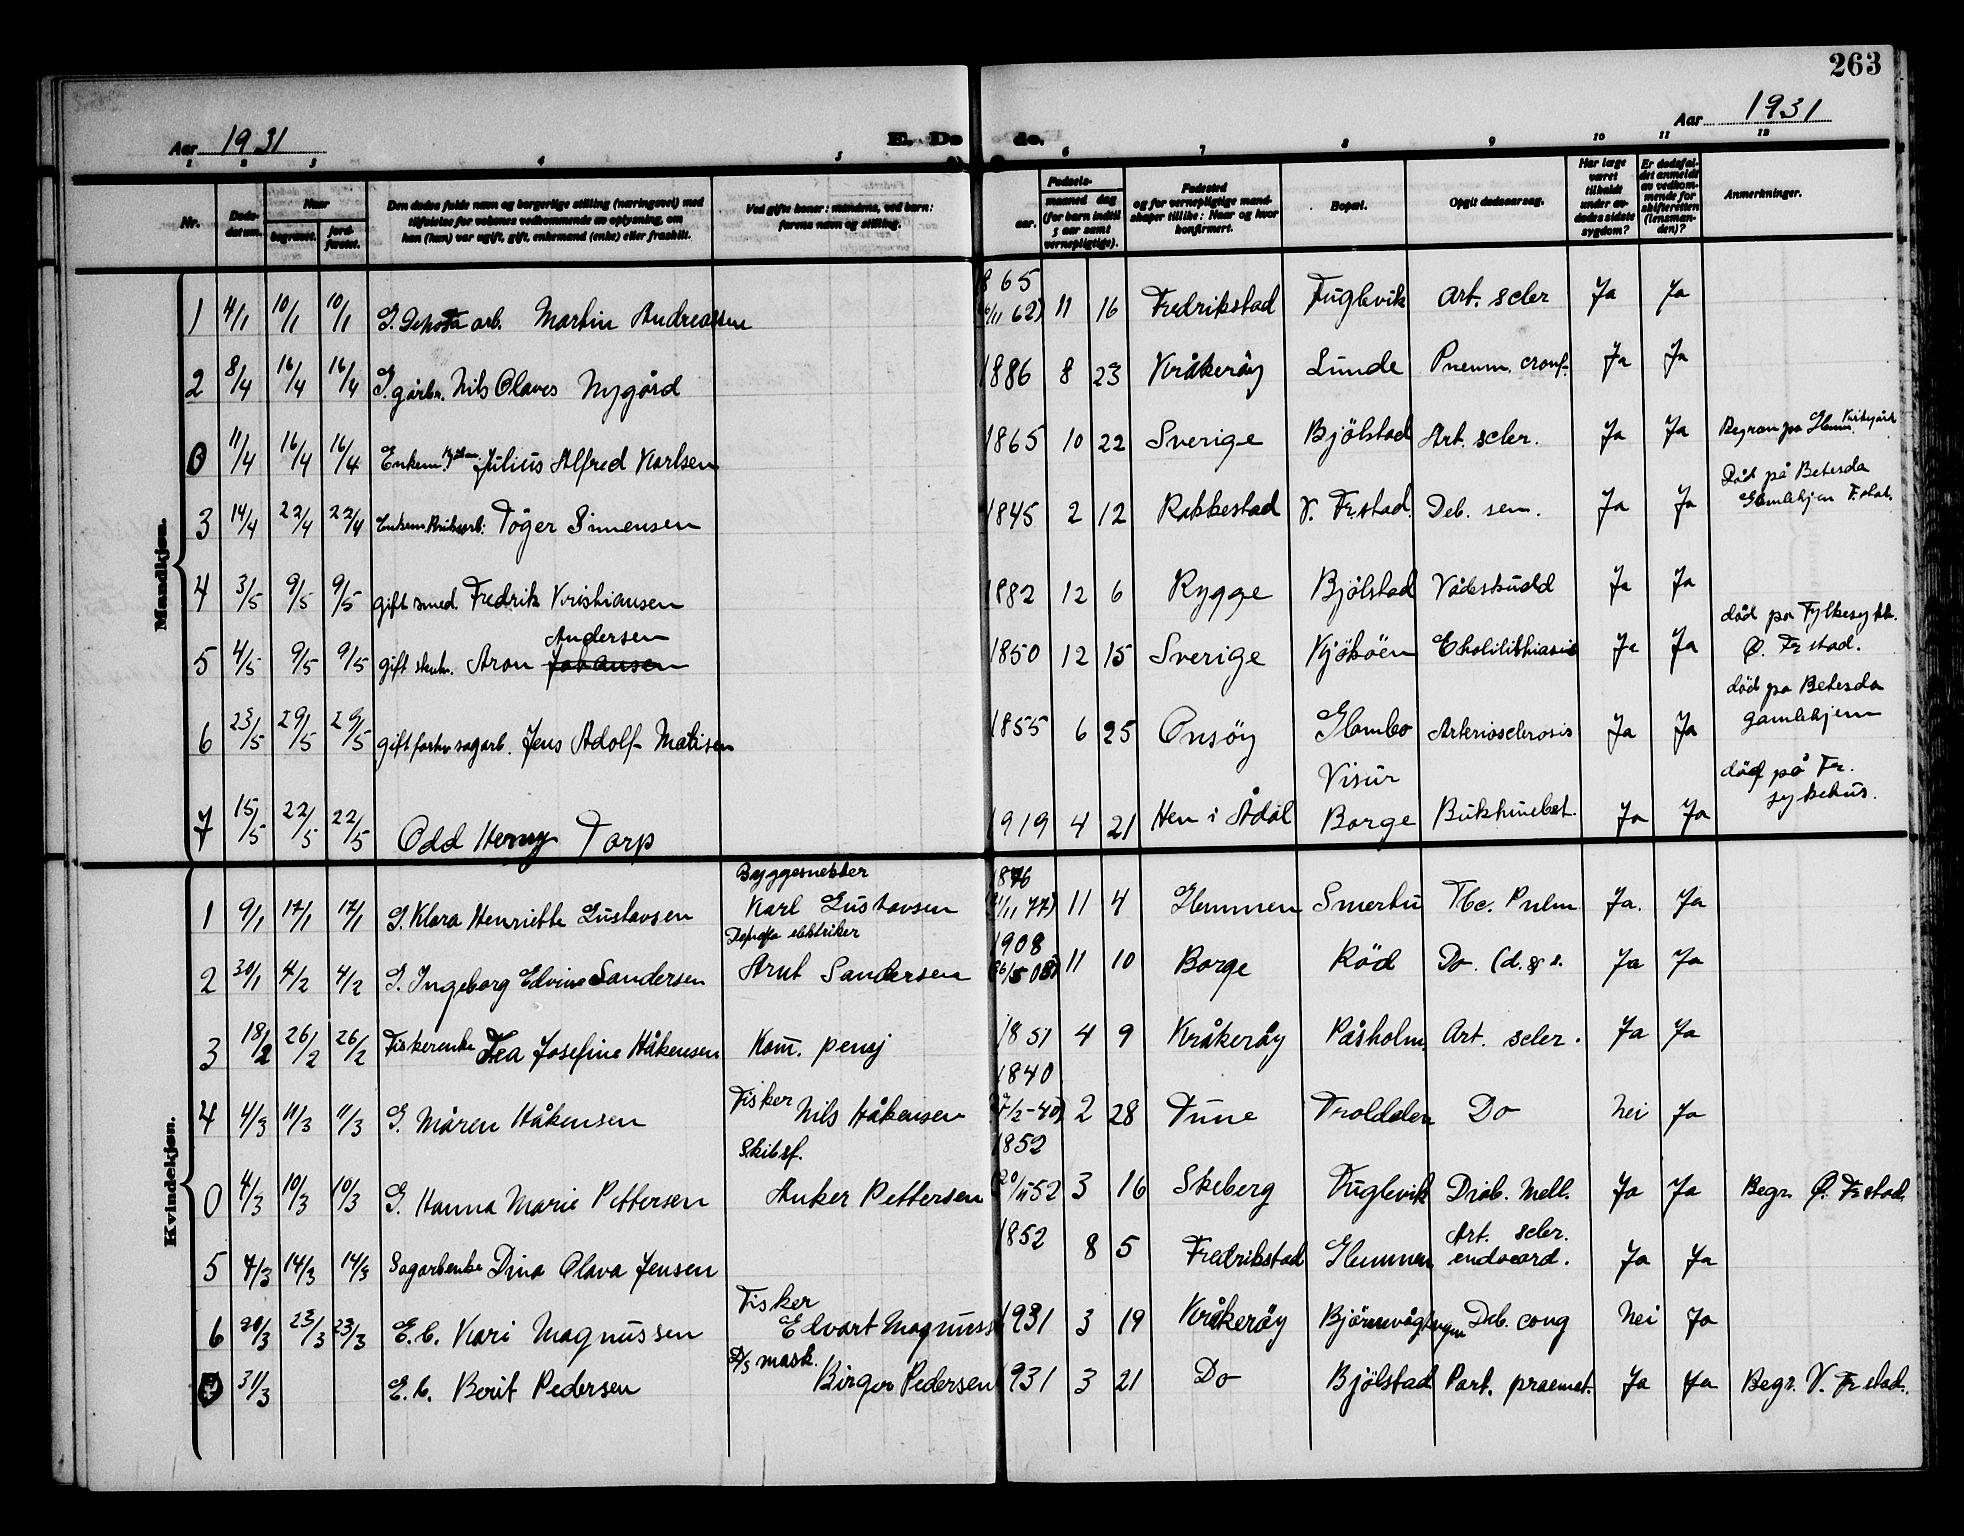 263
Aar 1931
E. Dø
de.
Aar 1931
1 2 3 4 5 6 7 8 9 10 11 12
Nr. Døds-datum. Naar begravet. jord-fæstet. Den dødes fulde navn og borgerlige stilling (næringsvei) med tilføielse for voksnes vedkommende av oplysning, om han (hun) var ugift, gift, enkemand (enke) eller fraskilt. Ved gifte koner: mandens, ved barn: farens navn og stilling. Fødsels- aar. maaned dag (for barn indtil 5 aar samt vernepligtige). Fødested og for vernepligtige mandskaper tillike: Naar og hvor konfirmert. Bopæl. Opgit dødsaarsag. Har læge været tilkaldt under avdødes sidste sygdom? Er dødsfaldet anmeldt av vedkommende for skifteretten (lensmanden)? Anmerkninger.
Mandkjøn.
1 4/1 10/1 10/1 G. Depotarb. Martin Andreassen 1865 11/62) 11 16 Fredrikstad Fuglevik Art. scler Ja Ja
2 8/4 16/4 16/4 G. gårbr. Nils Olaves Nygård 1886 8 23 Kråkerøy Lunde Pneum. croup. Ja Ja
0 11/4 16/4 16/4 Enkem. Julius Alfred Karlsen 1865 10 22 Sverige Bjölstad Art. scler. Ja Ja Begravn på Glemm. Kirkegård
3 14/4 22/4 22/4 Enkem Töger Simensen 1845 2 12 Rakkestad V. Fr.stad. Deb. sen. Ja Ja Död på Betesda Gamlehjem F.stad.
4 3/5 9/5 9/5 gift smed. Fredrik Kristiansen 1882 12 6 Rygge Bjölstad Vådeskudd Ja Ja
5 4/5 9/5 9/5 gift skuh. Aron Johansen Andersen 1850 12 15 Sverige Kjököen Cholilithiasis Ja Ja död på Fylkesykh. Ø. Fr stad.
6 23/5 29/5 29/5 gift forhv sagarb. Jens Adolf Matisen 1855 6 25 Onsöy Glombo Arteriosclerosis Ja Ja död på Betesda gamlehjem
7 15/5 22/5 22/5 Odd Henry Torp 1919 4 21 Hen i Ådal Visur Borge Bukhinebet. Ja Ja död på Fr. sykehus.
Kvindekjøn.
1 9/1 17/1 17/1 G. Klara Henriette Gustavsen Byggesnekker Karl Gustavsen 1876 11/77) 11 4 Glemmen Smertu Tbc. Pulm Ja. Ja
2 30/1 4/2 4/2 G. Ingeborg Edvine Sandersen Depota elektriker Arnt Sandersen 1908 11 10 Borge Röd Do. (d. s. Ja Ja
3 18/2 26/2 26/2 Fiskerenke Tea Josefine Håkensen Kom. pensj 1851 4 9 Kråkeröy Påsholm. Art. scler. Ja Ja
4 4/3 11/3 11/3 G. Måren Håkensen Fisker Nils Håkensen 1840 /2-40) 2 28 Tune Troldalen Do Nei Ja
0 4/3 10/3 10/3 G. Hanna Marie Pettersen Skibsf. Anker Pettersen 1852 20/11 52 3 16 Skeberg Fuglevik Diab. Mell. Ja Ja Begr. Ø. Fr stad.
5 7/3 14/3 14/3 Sagarbenke Dina Olava Jensen 1852 8 5 Fredrikstad Glemmen Art. scler. endocard. Ja Ja
6 20/3 23/3 23/3 E. b. Kari Magnussen Fisker Edvart Magnuss 1931 3 19 Kråkeröy Björnevågtangen Deb. cong Nei Ja
0 31/3 E. b. Berit Pedersen D/s mask. Birger Pedersen 1931 3 21 Do Bjölstad Part. praemat. Ja Ja Begr. V. Fr stad.